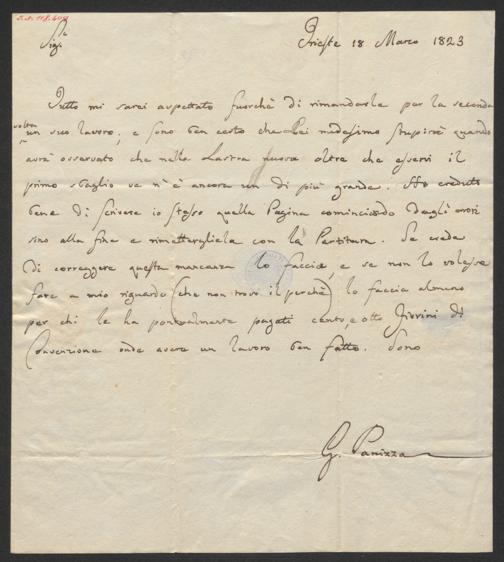 Sig.r
Trieste 18 Marzo 1823
Tutto mi sarei aspettato fuorchè di rimandarle per la seconda
volta
un suo lavoro, e sono ben certo che Lei medesimo stupirà quando
avrà osservato che nella Lastra nuova oltre che esservi il
primo sbaglio ve n'è ancora un di più grande. Ho creduto
bene di scrivere io stesso quella Pagina cominciando dagli
sino alla fine e rimettergliela con la Partitura. Se creda
di correggere questa mancanza lo faccia, e se non lo volesse
fare a mio riguardo (che non trovo il perchè) lo faccia almeno
per chi le ha puntualmente pagati cento, e otto Fiorini di
Convenzione onde avere un lavoro ben fatto. Sono
G. Panizza